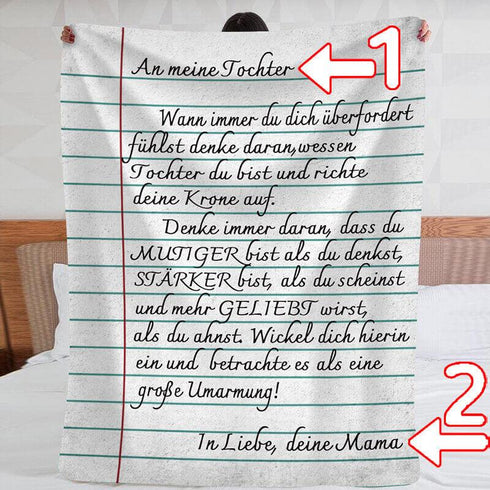 An meine Tochter
1
Wann immer du dich überfordert
fühlst denke daran,wessen
Tochter du bist und richte
deine Krone auf.
Denke immer daran, dass du
MUTIGER bist als du denkst,
STÄRKER bist, als du scheinst
und mehr GELIEBT wirst,
als du ahnst. Wickel dich hierin
ein und betrachte es als eine
große Umarmung!
2
In Liebe, deine Mama